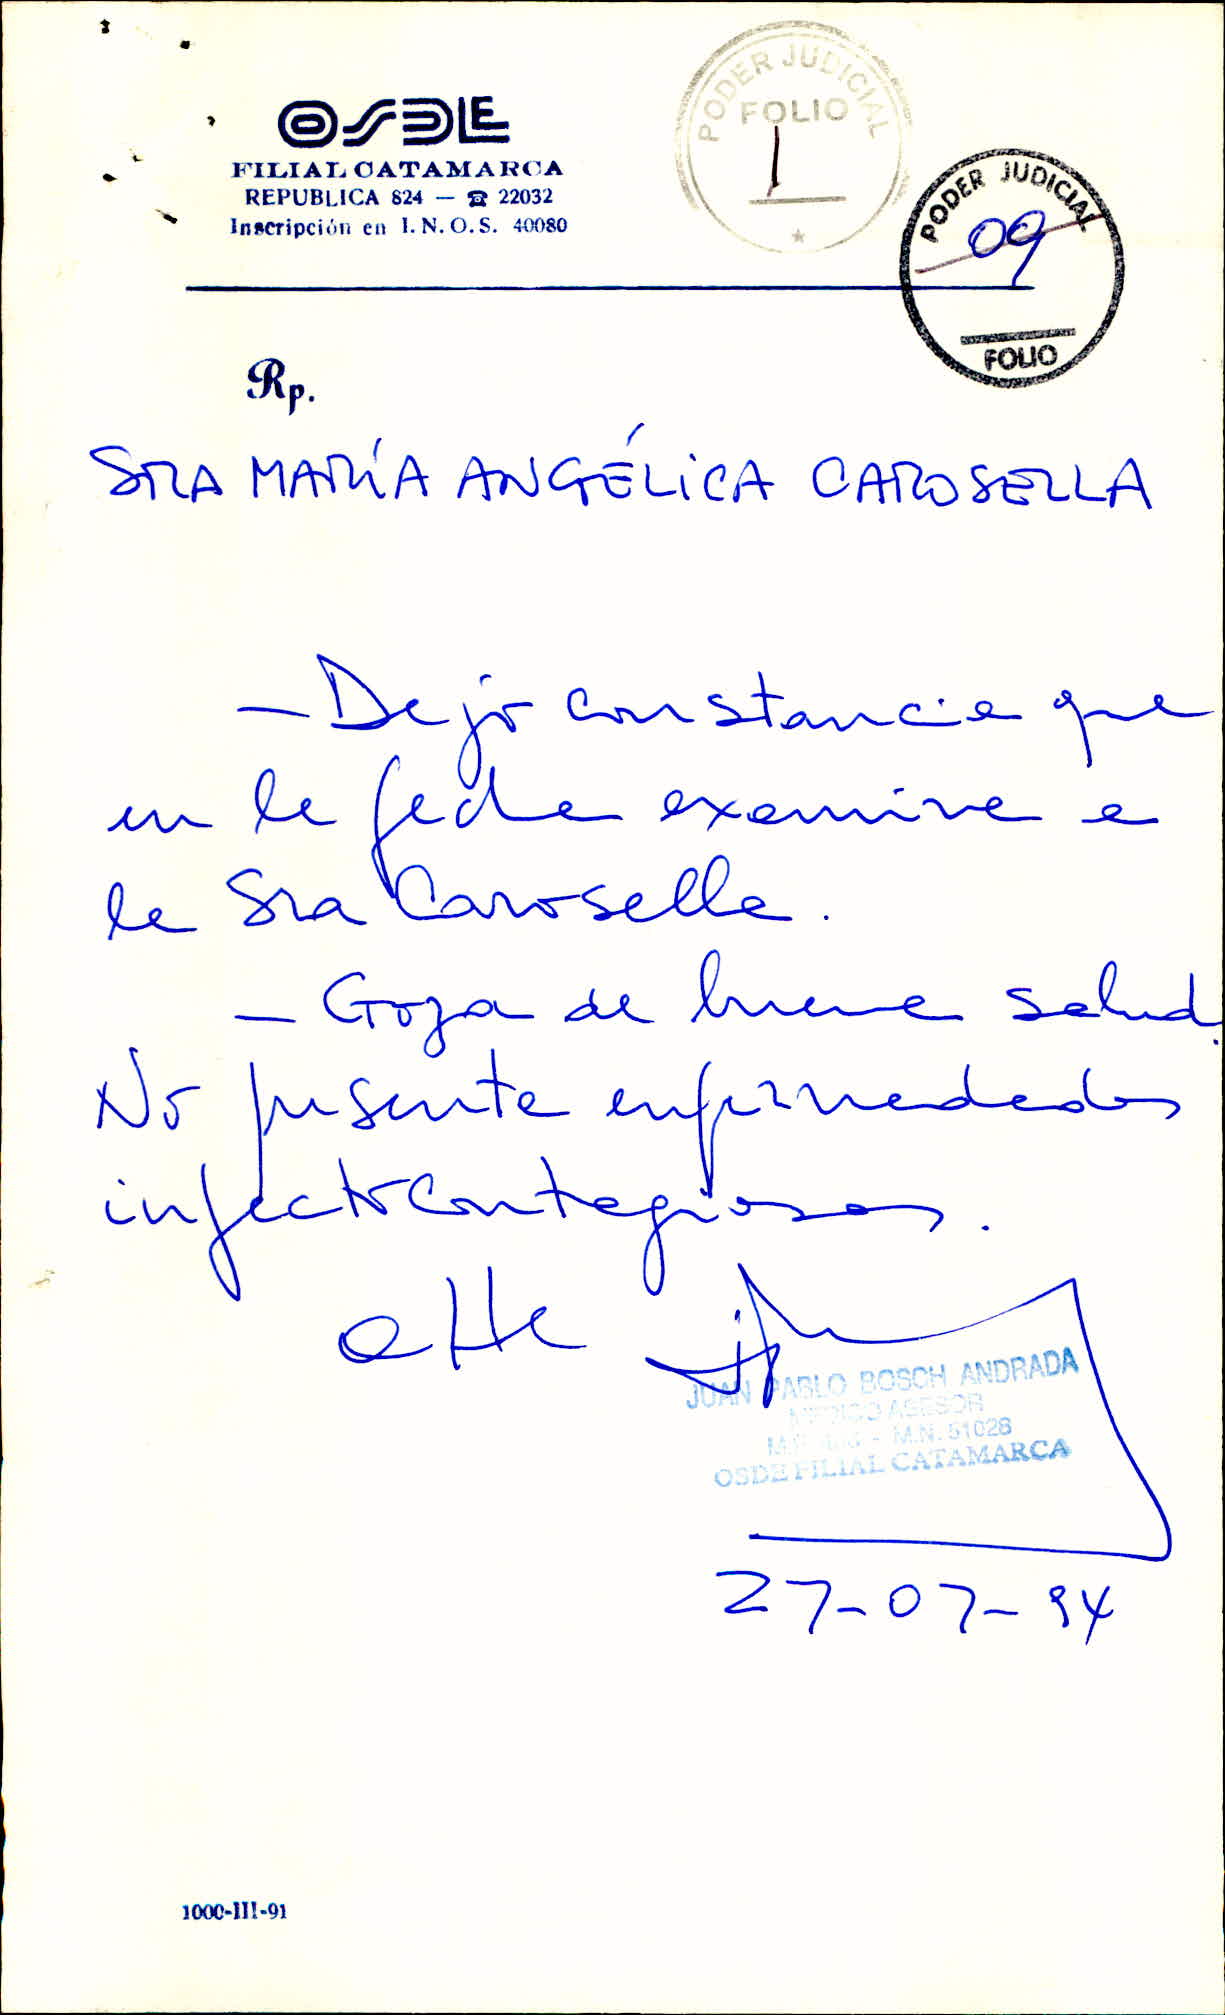 OSDE
FILIAL CATAMARCA
REPUBLICA 824 — ☎ 22032
Inscripción en I.N.O.S. 40080
PODER JUDICIAL
FOLIO
1
PODER JUDICIAL
09
FOLIO
Rp.
SRA MARÍA ANGÉLICA CAROSELLA
— Dejo constancia que
en la fecha examine a
la Sra Carosella.
— Goza de buena salud.
No presenta enfermedades
infectocontagiosas.
atte
JUAN PABLO BOSCH ANDRADA
MEDICO ASESOR
M.N. 51028
OSDE FILIAL CATAMARCA
27-07-94
1000-III-91